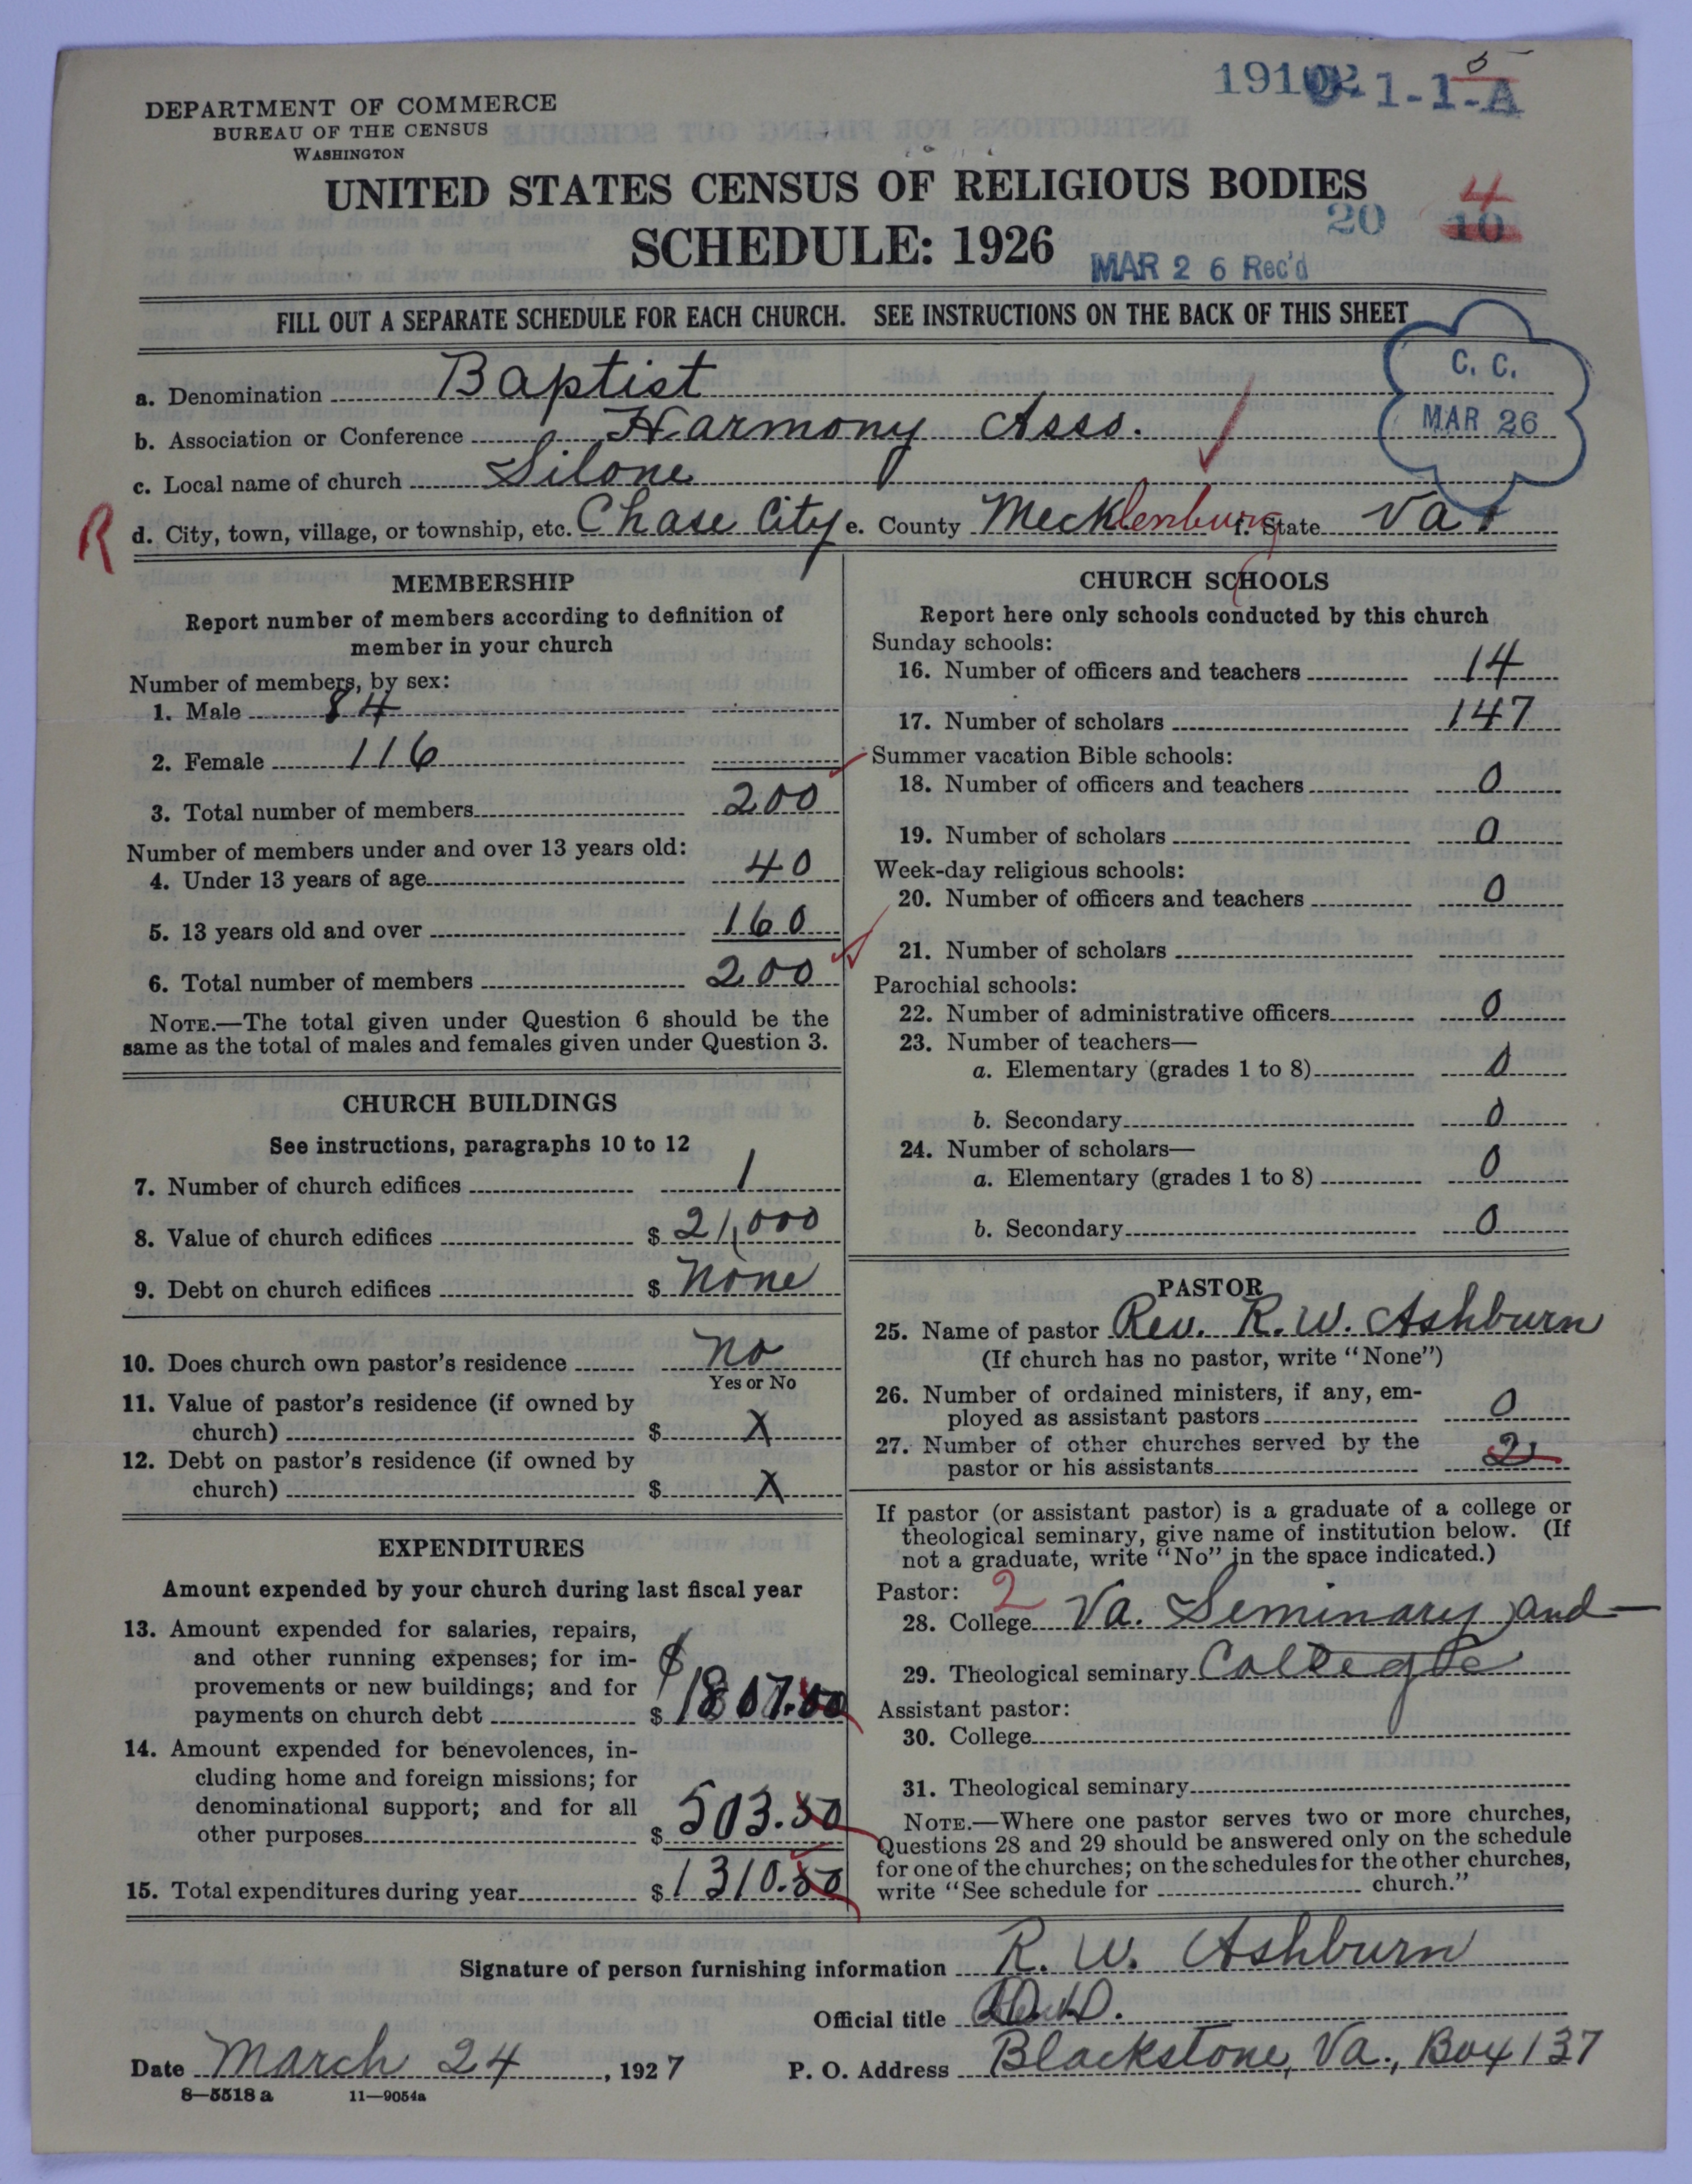 DEPARTMENT OF COMMERCE
BUREAU OF THE CENSUS
WASHINGTON
5
1-1-A
UNITED STATES CENSUS OF RELIGIOUS BODIES
SCHEDULE: 1926
20 10 4
MAR 26 Rec'd
FILL OUT A SEPARATE SCHEDULE FOR EACH CHURCH. SEE INSTRUCTIONS ON THE BACK OF THIS SHEET
C. C.
MAR 26
a. Denomination Baptist
b. Association or Conference Harmony Asso.
c. Local name of church Silone
R
d. City, town, village, or township, etc. Chase City e. County Mecklenburg f. State Va.
MEMBERSHIP
Report number of members according to definition of
member in your church
Number of members, by sex:
1. Male 84
2. Female 116
3. Total number of members 200
Number of members under and over 13 years old:
4. Under 13 years of age 40
5. 13 years old and over 160
6. Total number of members 200
NOTE.—The total given under Question 6 should be the
same as the total of males and females given under Question 3.
CHURCH BUILDINGS
See instructions, paragraphs 10 to 12
7. Number of church edifices 1
8. Value of church edifices $ 21,000
9. Debt on church edifices $ None
10. Does church own pastor's residence No
Yes or No
11. Value of pastor's residence (if owned by
church) $ X
12. Debt on pastor's residence (if owned by
church) $ X
EXPENDITURES
Amount expended by your church during last fiscal year
13. Amount expended for salaries, repairs,
and other running expenses; for im-
provements or new buildings; and for
payments on church debt $
14. Amount expended for benevolences, in-
cluding home and foreign missions; for
denominational support; and for all
other purposes $ 503.50
15. Total expenditures during year $ 1310.50
CHURCH SCHOOLS
Report here only schools conducted by this church
Sunday schools:
16. Number of officers and teachers 14
17. Number of scholars 147
Summer vacation Bible schools:
18. Number of officers and teachers 0
19. Number of scholars 0
Week-day religious schools:
20. Number of officers and teachers 0
21. Number of scholars
Parochial schools:
22. Number of administrative officers 0
23. Number of teachers—
a. Elementary (grades 1 to 8) 0
b. Secondary 0
24. Number of scholars—
a. Elementary (grades 1 to 8) 0
b. Secondary 0
PASTOR
25. Name of pastor Rev. R. W. Ashburn
(If church has no pastor, write "None")
26. Number of ordained ministers, if any, em-
ployed as assistant pastors 0
27. Number of other churches served by the
pastor or his assistants 2
If pastor (or assistant pastor) is a graduate of a college or
theological seminary, give name of institution below. (If
not a graduate, write "No" in the space indicated.)
Pastor: 2
28. College Va. Seminary and
29. Theological seminary College
Assistant pastor:
30. College
31. Theological seminary
NOTE.—Where one pastor serves two or more churches,
Questions 28 and 29 should be answered only on the schedule
for one of the churches; on the schedules for the other churches,
write "See schedule for church."
Signature of person furnishing information R. W. Ashburn
Official title
Date March 24, 1927 P. O. Address Blackstone, Va., Box 137
8—5518 a 11—9054a